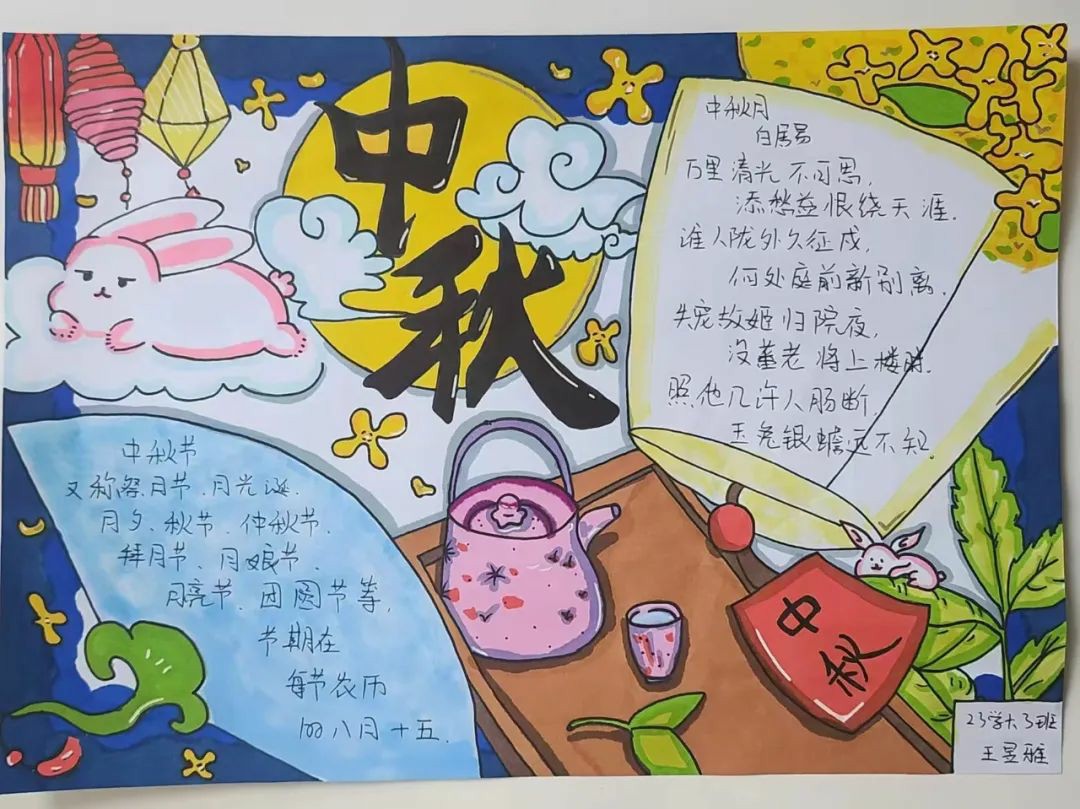 中秋
中秋月
白居易
万里清光不可思,
添愁益恨绕天涯.
谁人陇外久征戍,
何处庭前新别离.
失宠故姬归院夜,
没蕃老将上楼时.
照他几许人肠断,
玉兔银蟾远不知.
中秋节
又称祭月节、月光诞、
月夕、秋节、仲秋节、
拜月节、月娘节、
月亮节、团圆节等,
节期在
每节农历
的八月十五.
中秋
23学大3班
王昱雅